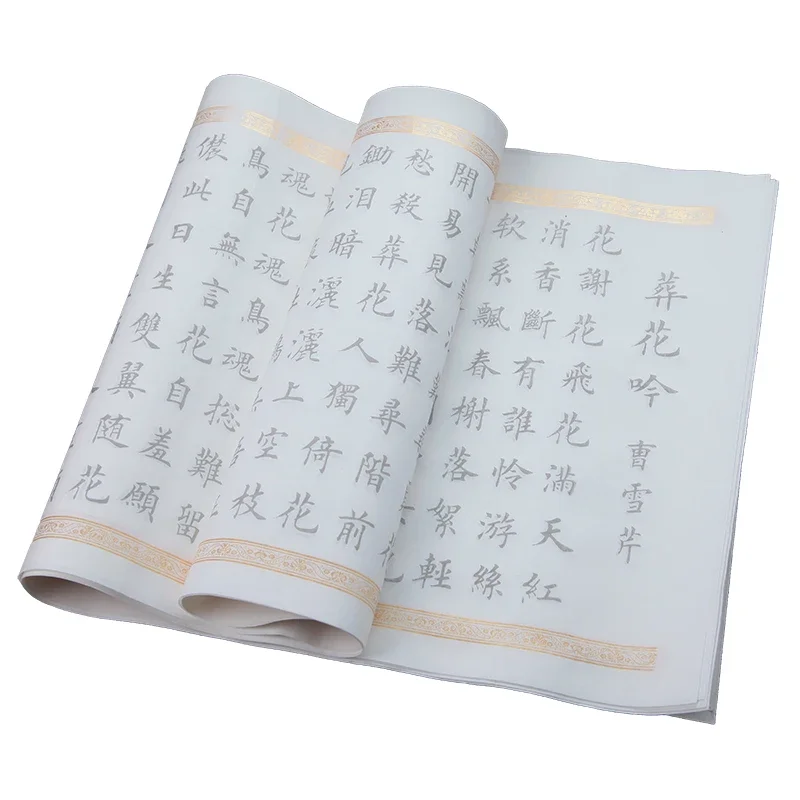 葬花吟 曹雪芹
花謝花飛花滿天紅
消香斷有誰怜游絲
软系飄春榭落絮輕
開易見落難尋階前
愁殺葬花人獨倚花
鋤泪暗灑灑上空枝
魂花魂鳥魂総難留
鳥自無言花自羞願
儂此日生雙翼随花